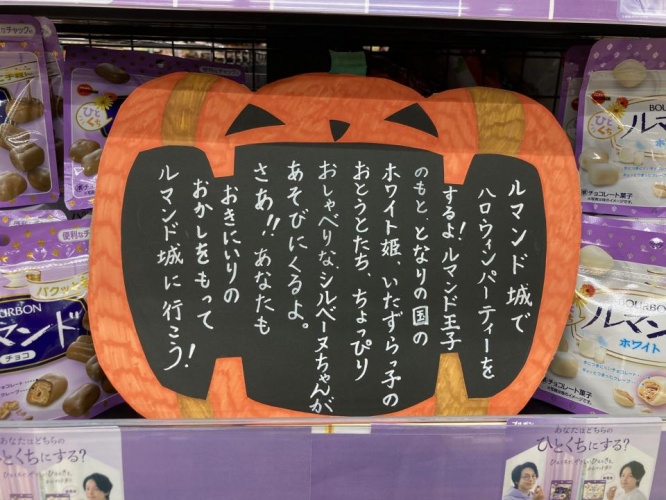 ルマンド城で
ハロウィンパーティーを
するよ!ルマンド王子
のもと、となりの国の
ホワイト姫、いたずらっ子の
おとうとたち、ちょっぴり
おしゃべりな、シルベーヌちゃんが
あそびにくるよ。
さあ!!あなたも
おきにいりの
おかしをもって
ルマンド城に行こう!
ひとくち
BOURBON
ルマンド
ホワイト
チョコレート菓子
BOURBON
ルマンド
ホワイト
チョコレート菓子
便利なチャック
パクッ
BOURBON
マンド
チョコ
チョコレート菓子
あなたはどちらの
ひとくちにする?
あなたはどちらの
ひとくちにする?